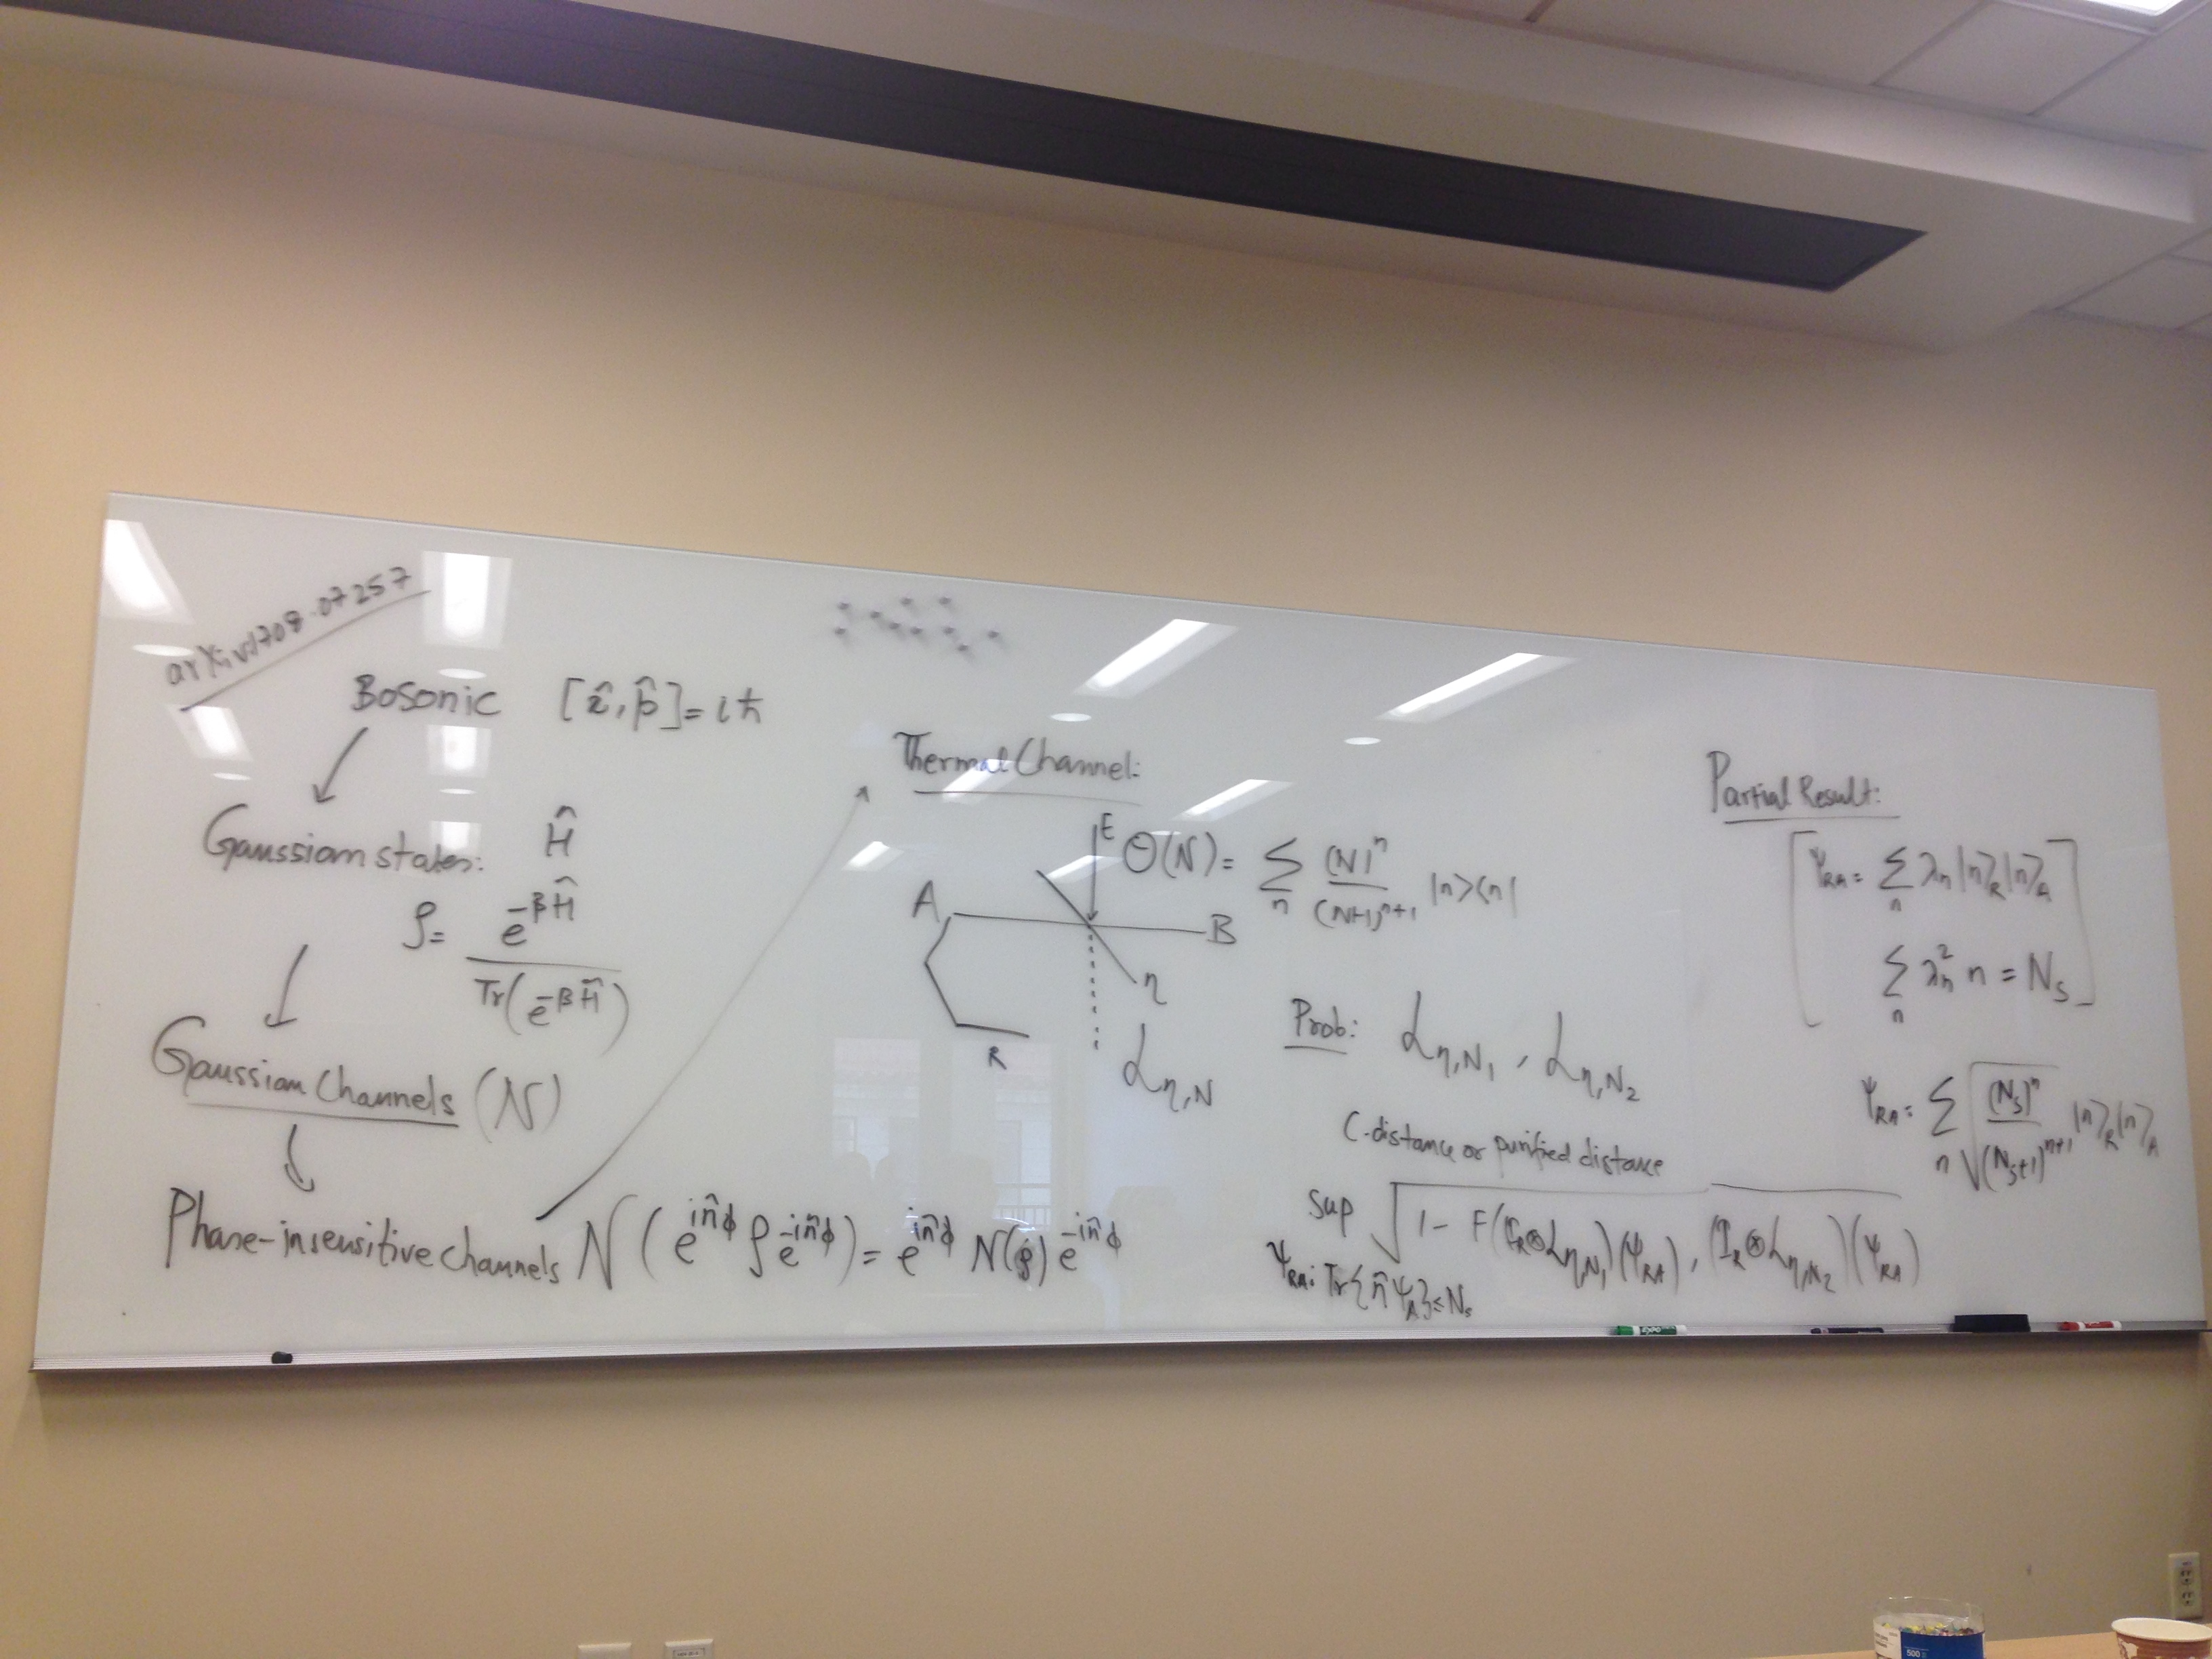 arXiv:1708.07257
Bosonic [x̂, p̂] = iħ
Gaussian states: Ĥ
ρ = e^{-βĤ} / Tr(e^{-βĤ})
Gaussian Channels (N)
Phase-insensitive channels N(e^{in̂φ} ρ e^{-in̂φ}) = e^{in̂φ} N(ρ) e^{-in̂φ}
Thermal Channel:
E Θ(N) = Σ_n (N)^n / (N+1)^{n+1} |n><n|
A B
η
R
L_{η,N}
Prob: L_{η,N_1}, L_{η,N_2}
C-distance or purified distance
Sup √(1 - F((I_R⊗L_{η,N_1})(ψ_{RA}), (I_R⊗L_{η,N_2})(ψ_{RA})))
ψ_{RA}: Tr{n̂ψ_A} ≤ N_s
Partial Result:
[ψ_{RA} = Σ_n λ_n |n>_R |n>_A
Σ_n λ_n^2 n = N_s]
ψ_{RA} = Σ_n √((N_s)^n / (N_s+1)^{n+1}) |n>_R |n>_A
expo
500